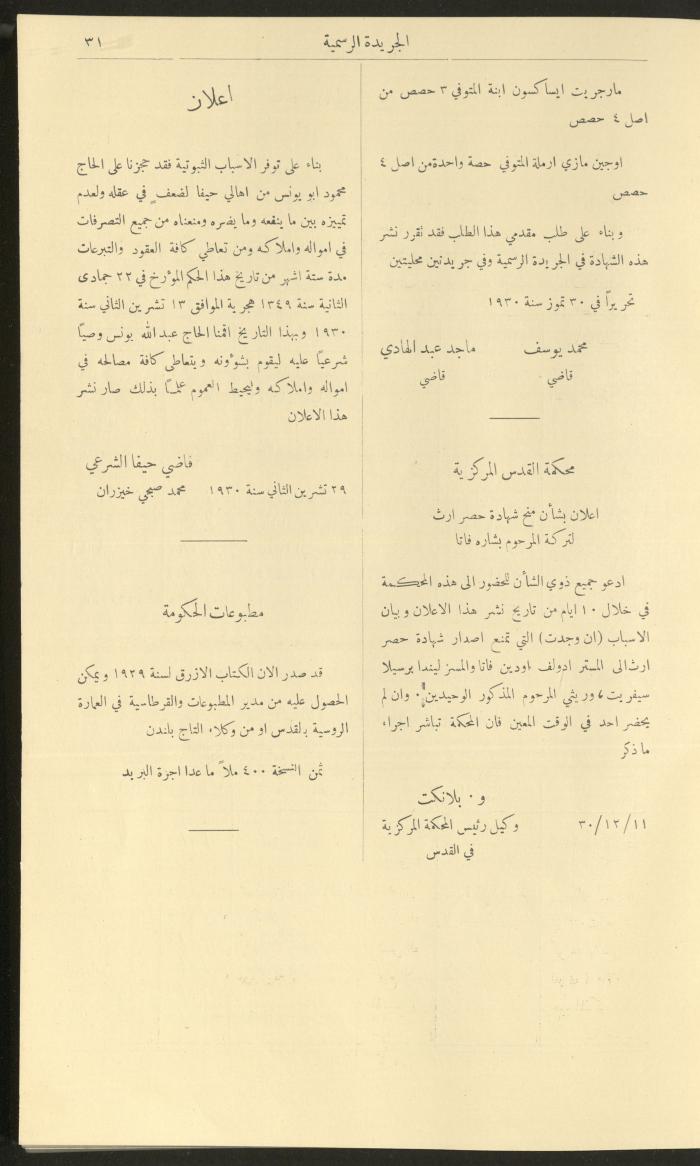 الجريدة الرسمية
٣١
مارجريت ايساكسون ابنة المتوفي ٣ حصص من
اصل ٤ حصص
اوجين مازي ارملة المتوفي حصة واحدة من اصل ٤
حصص
وبناء على طلب مقدمي هذا الطلب فقد نقرر نشر
هذه الشهادة في الجريدة الرسمية وفي جريدتين محليتين
تحريراً في ٣٠ تموز سنة ١٩٣٠
محمد يوسف ماجد عبد الهادي
قاضي قاضي
محكمة القدس المركزية
اعلان بشأن منح شهادة حصر ارث
لتركة المرحوم بشاره فاتا
ادعو جميع ذوي الشأن للحضور الى هذه المحكمة
في خلال ١٠ ايام من تاريخ نشر هذا الاعلان وبيان
الاسباب (ان وجدت) التي تمنع اصدار شهادة حصر
ارث الى المستر ادولف اودين فاتا والمسز ليندا برسيلا
سيفريت، وريثي المرحوم المذكور الوحيدين. وان لم
يحضر احد في الوقت المعين فان المحكمة تباشر اجراء
ما ذكر
و. بلانكت
١١/١٢/٣٠ وكيل رئيس المحكمة المركزية
في القدس
اعلان
بناء على توفر الاسباب الثبوتية فقد حجزنا على الحاج
محمود ابو يونس من اهالي حيفا لضعف في عقله ولعدم
تمييزه بين ما ينفعه وما يضره ومنعناه من جميع التصرفات
في امواله واملاكه ومن تعاطي كافة العقود والتبرعات
مدة ستة اشهر من تاريخ هذا الحكم المؤرخ في ٢٢ جمادى
الثانية سنة ١٣٤٩ هجرية الموافق ١٣ تشرين الثاني سنة
١٩٣٠ وبهذا التاريخ اقمنا الحاج عبد الله يونس وصياً
شرعياً عليه ليقوم بشؤونه ويتعاطى كافة مصالحه في
امواله واملاكه وليحيط العموم علماً بذلك صار نشر
هذا الاعلان
قاضي حيفا الشرعي
٢٩ تشرين الثاني سنة ١٩٣٠ محمد صبحي خيزران
مطبوعات الحكومة
قد صدر الان الكتاب الازرق لسنة ١٩٢٩ ويمكن
الحصول عليه من مدير المطبوعات والقرطاسية في العمارة
الروسية بالقدس او من وكلاء التاج بلندن
ثمن النسخة ٤٠٠ ملاً ما عدا اجرة البريد